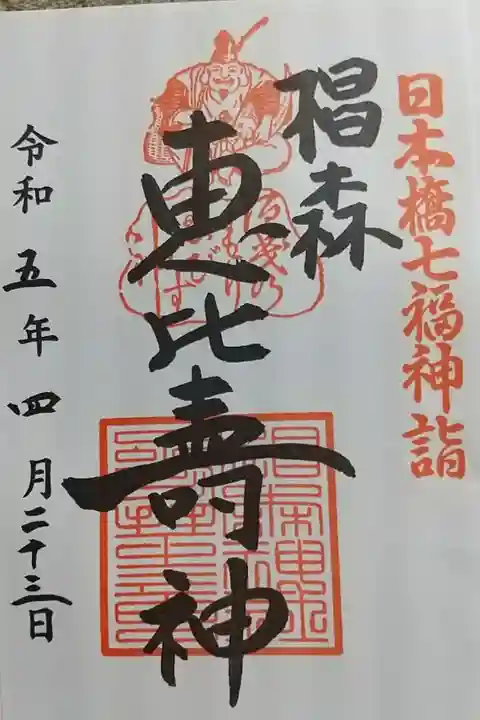 日本橋七福神詣
椙森
恵比壽神
令和五年四月二十三日